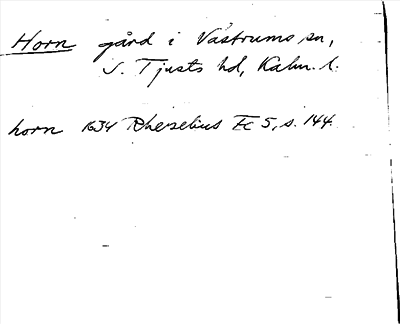 Horn gård i Västrums sn,
S. Tjusts hd, Kalm. l.
horn 1634 Rhezelius Fc 5, s. 144.